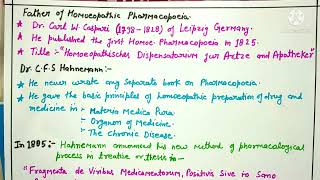 Father of Homoeopathic Pharmacopoeia
★ Dr. Carl W. Caspari (1798 - 1828) of Leipzig Germany.
★ He published the first Homoe. Pharmacopoeia in 1825.
★ Title :- "Homoeopathisches Dispensatorium fur Artze and Apotheker"
Dr. C.F.S Hahnemann:-
★ He never wrote any Separate book on Pharmacopoeia.
★ He gave the basic principles of homoeopathic preparation of drug and
medicine in :- Materia Medica Pura
- Organon of Medicine
- The Chronic Disease.
In 1805:- Hahnemann announced his new method of pharmacological
process in treatise or thesis in -
"Fragmenta de Viribus Medicamentorum, Positivis Sive in Sano